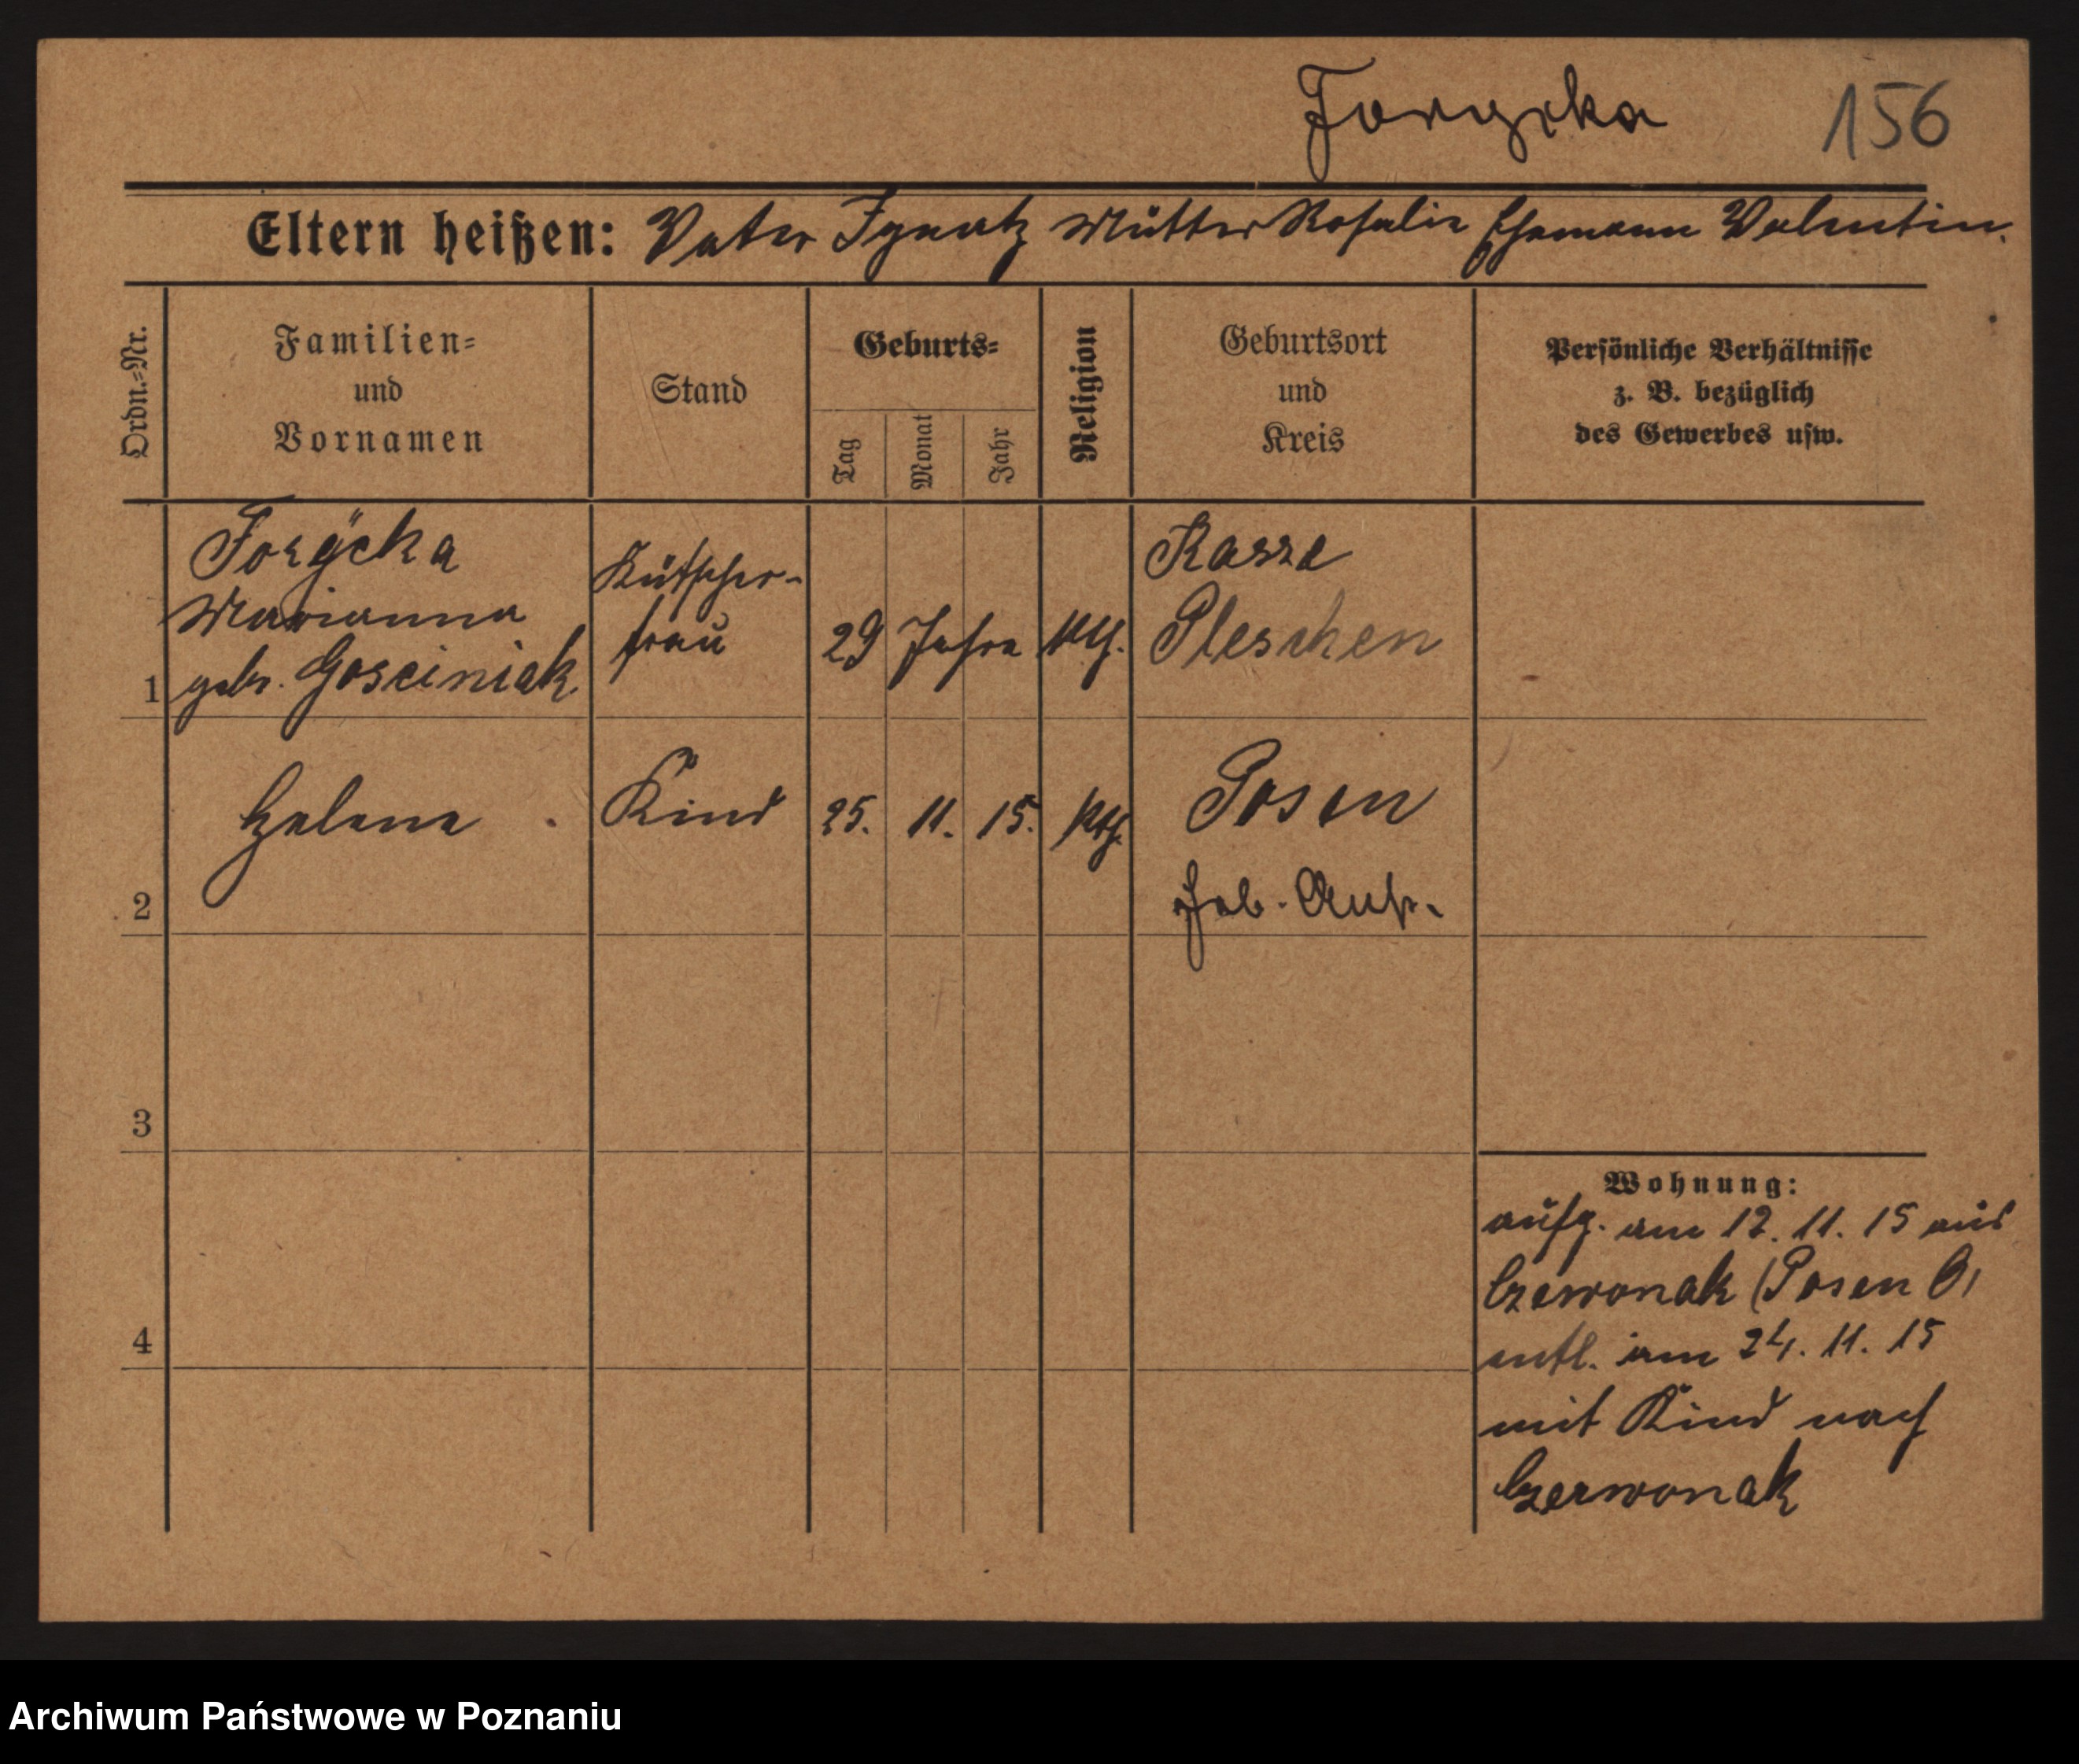 Forycka 156
Eltern heißen: Vater Ignatz Mutter Rosalie Ehemann Valentin.
Ordn.-Nr.
Familien-
und
Vornamen
Stand
Geburts-
Tag
Monat
Jahr
Religion
Geburtsort
und
Kreis
Persönliche Verhältnisse
z. B. bezüglich
des Gewerbes usw.
Forÿcka
Marianna
1 geb. Gosciniak
Kutscher-
frau
29 Jahre
kth.
Pleschen
2 Helena
Kind
25. 11. 15.
kth.
Posen
Heb. Anst.
3
4
Wohnung:
aufg. am 12. 11. 15 aus
Czerwonak (Posen O)
entl. am 24. 11. 15
mit Kind nach
Czerwonak
Archiwum Państwowe w Poznaniu